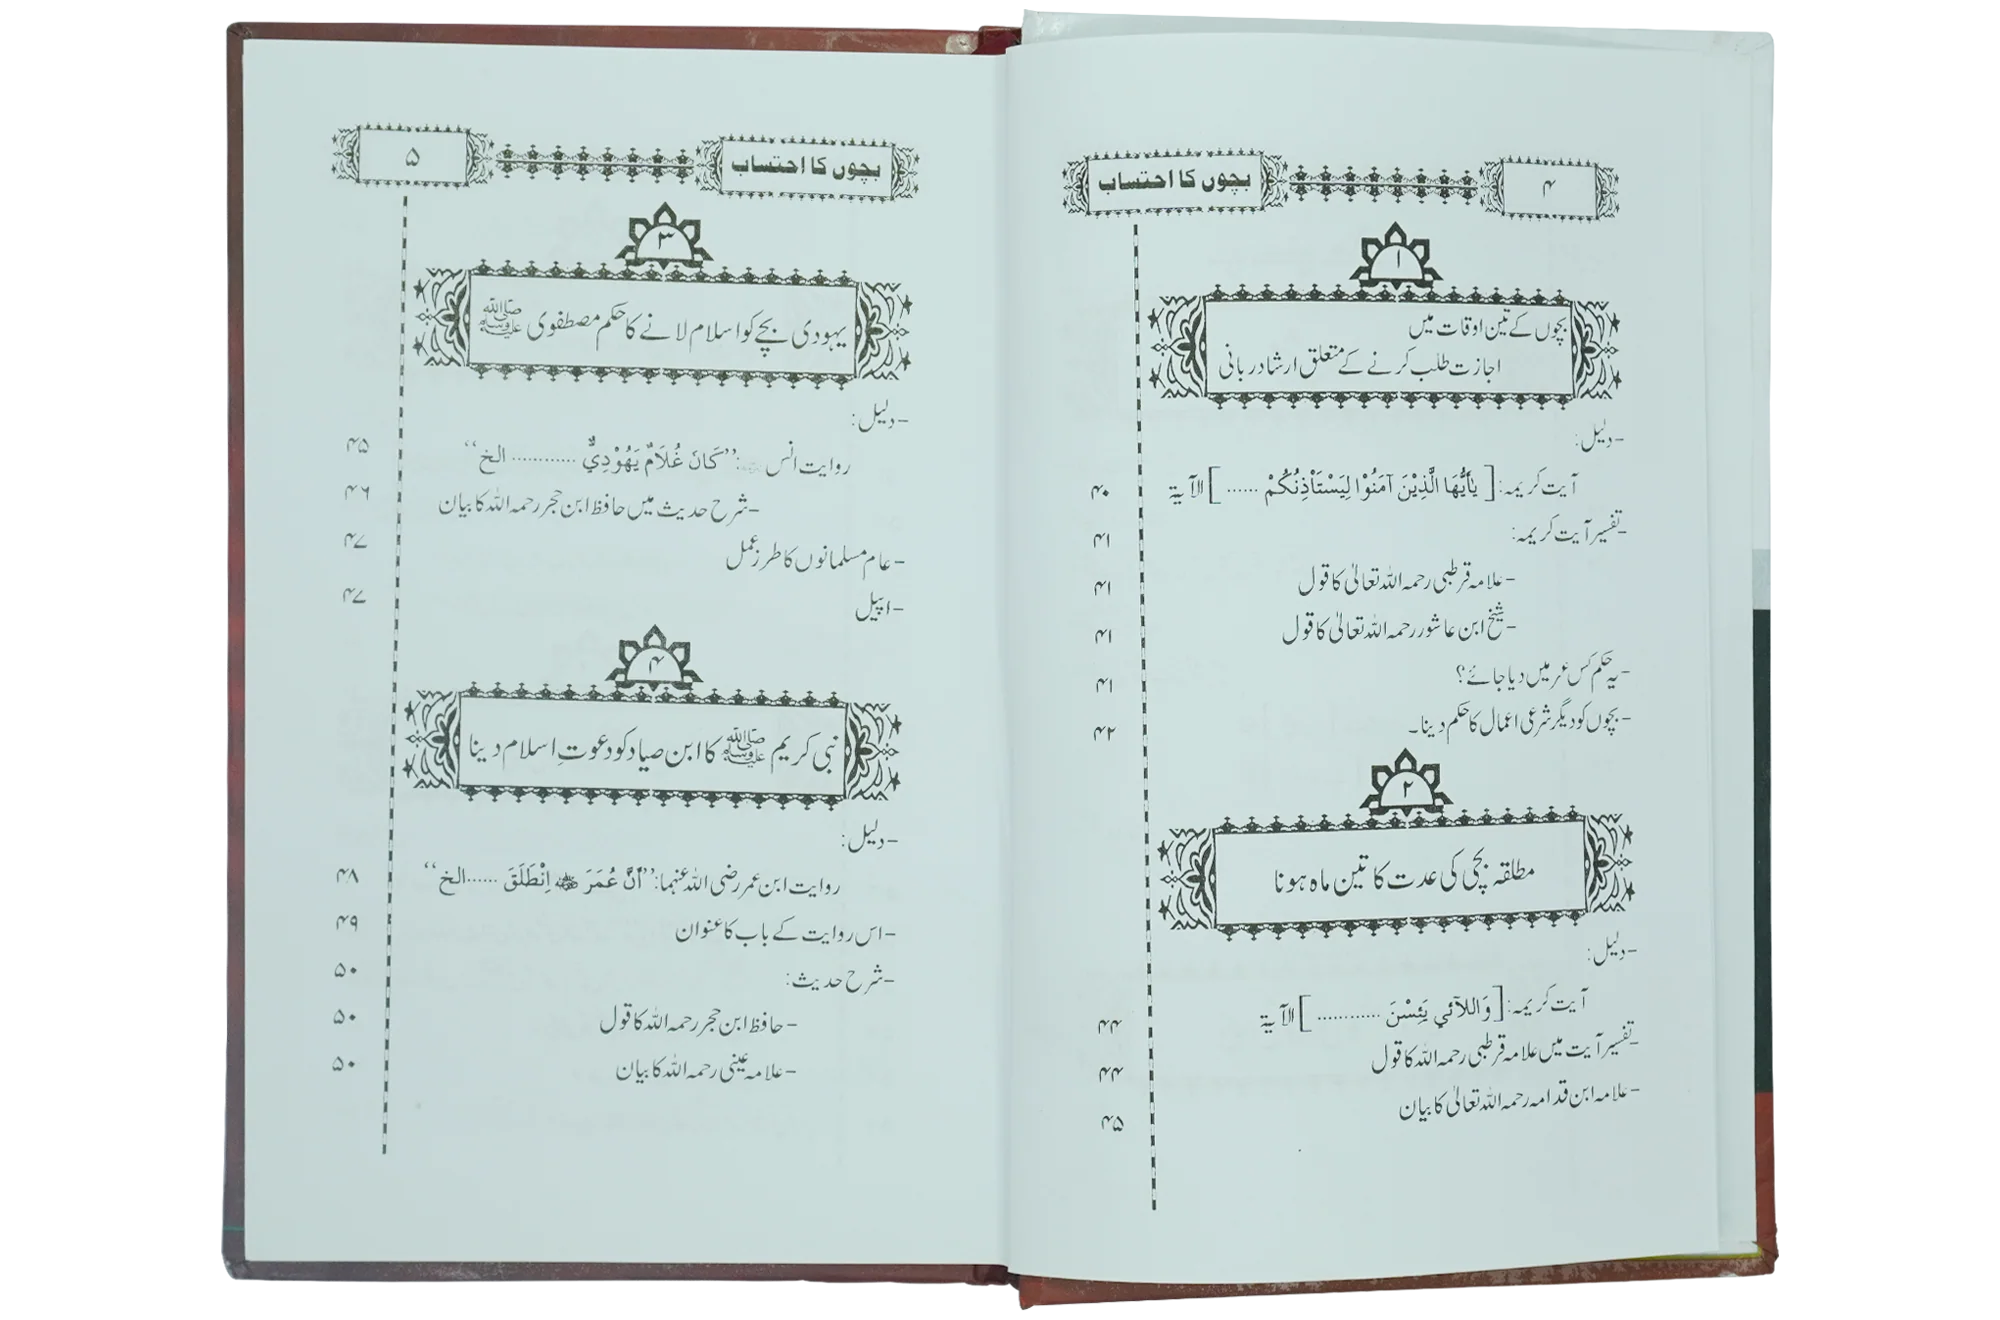 ۴
بچوں کا احتساب
۱
بچوں کے تین اوقات میں
اجازت طلب کرنے کے متعلق ارشاد ربانی
- دلیل:
آیت کریمہ: [یٰأَیُّهَا الَّذِیْنَ آمَنُوْا لِیَسْتَأْذِنْکُمْ ......] الآیة ۴۰
- تفسیر آیت کریمہ: ۴۱
- علامہ قرطبی رحمہ اللہ تعالیٰ کا قول ۴۱
- شیخ ابن عاشور رحمہ اللہ تعالیٰ کا قول ۴۱
- یہ حکم کس عمر میں دیا جائے؟ ۴۱
- بچوں کو دیگر شرعی اعمال کا حکم دینا۔ ۴۲
۲
مطلقہ بچی کی عدت کا تین ماہ ہونا
- دلیل:
آیت کریمہ: [وَاللَّآئِي يَئِسْنَ ............] الآیة ۴۴
- تفسیر آیت میں علامہ قرطبی رحمہ اللہ کا قول ۴۴
- علامہ ابن قدامہ رحمہ اللہ تعالیٰ کا بیان ۴۵
بچوں کا احتساب
۵
۳
یہودی بچے کو اسلام لانے کا حکم مصطفوی ﷺ
- دلیل:
روایت انس رضی اللہ عنہ: ’’کَانَ غُلَامٌ یَهُوْدِيٌّ ............ الخ‘‘ ۴۵
- شرح حدیث میں حافظ ابن حجر رحمہ اللہ کا بیان ۴۶
- عام مسلمانوں کا طرز عمل ۴۷
- اپیل ۴۷
۴
نبی کریم ﷺ کا ابن صیاد کو دعوتِ اسلام دینا
- دلیل:
روایت ابن عمر رضی اللہ عنہما: ’’أَنَّ عُمَرَ رضی اللہ عنہ اِنْطَلَقَ ...... الخ‘‘ ۴۸
- اس روایت کے باب کا عنوان ۴۹
- شرح حدیث: ۵۰
- حافظ ابن حجر رحمہ اللہ کا قول ۵۰
- علامہ عینی رحمہ اللہ کا بیان ۵۰